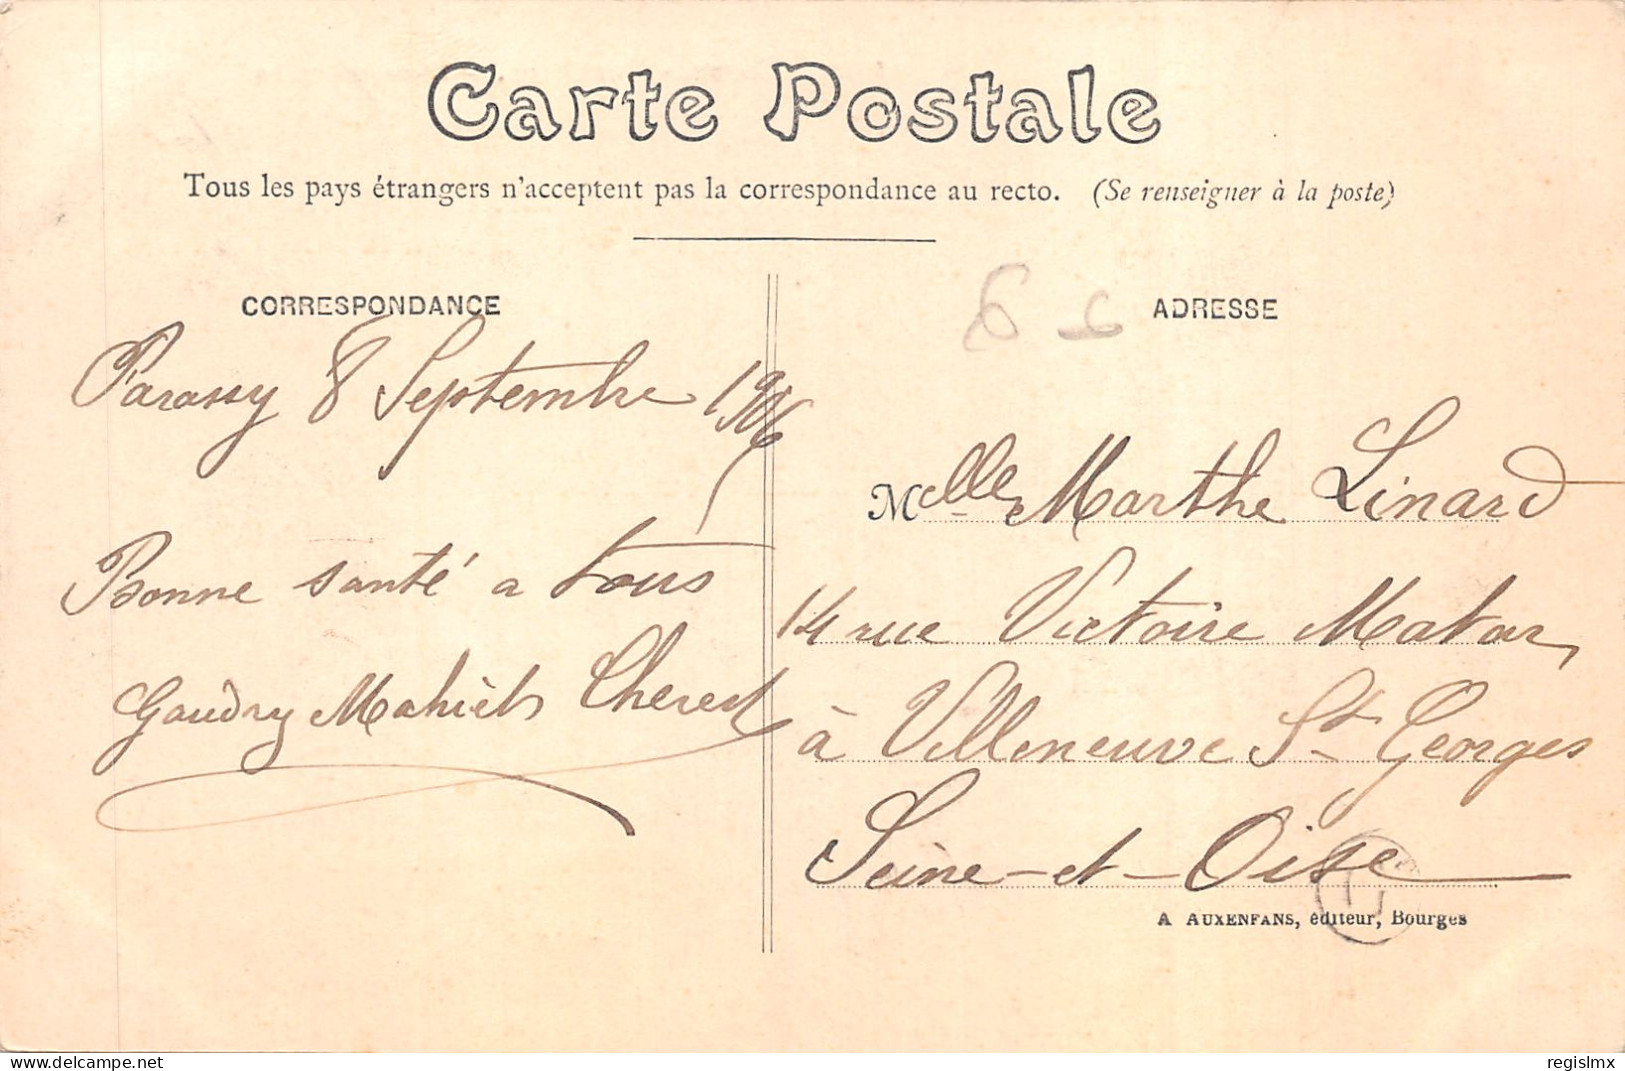 Carte Postale
Tous les pays étrangers n'acceptent pas la correspondance au recto. (Se renseigner à la poste)
CORRESPONDANCE
Parassy 8 Septembre 1906
Bonne santé a tous
Gaudry Cherest
ADRESSE
Melle Marthe Linard
14 rue Victoire
à Villeneuve St Georges
Seine-et-Oise
A AUXENFANS, éditeur, Bourges
www.delcampe.net
regislmx